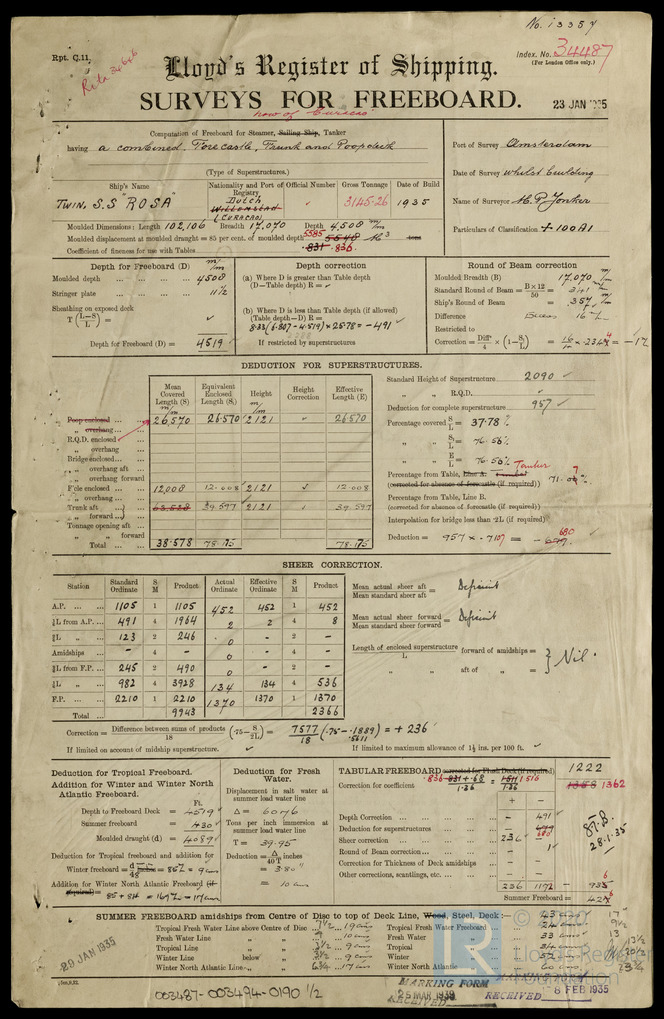 No. 13357
Rpt. C.11.
Index. No. 34487
(For London Office only.)
Lloyd's Register of Shipping.
SURVEYS FOR FREEBOARD.
23 JAN 1935
now of Curacao
Computation of Freeboard for Steamer, Sailing Ship, Tanker
having a combined Forecastle, Trunk and Poopdeck
(Type of Superstructures.)
Port of Survey Amsterdam
Date of Survey whilst building
Name of Surveyor H. P. Jonker
Particulars of Classification +100A1
Ship's Name
Nationality and Port of Registry
Official Number
Gross Tonnage
Date of Build
TWIN. S.S "ROSA"
Dutch
Willemstad
(CURACAO)
3145.26
1935
Moulded Dimensions: Length 102,106 Breadth 17,070 Depth 4,508 m/m
Moulded displacement at moulded draught = 85 per cent. of moulded depth 5585 5548 M3 tons
Coefficient of fineness for use with Tables .831 .836
Depth for Freeboard (D)
Moulded depth 4508
Stringer plate 11½
Sheathing on exposed deck
T (L-S/L) =
Depth for Freeboard (D) = 4519
Depth correction
(a) Where D is greater than Table depth
(D—Table depth) R =
(b) Where D is less than Table depth (if allowed)
(Table depth—D) R =
8.33(6.807-4.519) × 25.78 = -491
If restricted by superstructures
Round of Beam correction
Moulded Breadth (B) 17,070 m/m
Standard Round of Beam = B×12/50 = 341 m/m
Ship's Round of Beam = 357 m/m
Difference Excess 16 m/m
Restricted to
Correction = Diff/4 × (1-S1/L) = 16/4 × .2344 = -1
DEDUCTION FOR SUPERSTRUCTURES.
Mean Covered Length (S) m/m
Equivalent Enclosed Length (S1)
Height m/m
Height Correction
Effective Length (E)
Poop enclosed 26,570 26.570 2121 26.570
" overhang
R.Q.D. enclosed
" overhang
Bridge enclosed
" overhang aft
" overhang forward
F'cle enclosed 12,008 12.008 2121 12.008
" overhang
Trunk aft 63.528 39.597 2121 39.597
" forward
Tonnage opening aft
" " forward
Total 38.578 78.175 78.175
Standard Height of Superstructure 2090
" " R.Q.D.
Deduction for complete superstructure 957
Percentage covered S/L = 37.78%
" " S1/L = 76.56%
" " E/L = 76.56%
Percentage from Table, Line A. Tanker
(corrected for absence of forecastle (if required)) 71.07
Percentage from Table, Line B.
(corrected for absence of forecastle (if required))
Interpolation for bridge less than ·2L (if required)
Deduction = 957 × .7107 = - 680
SHEER CORRECTION.
Station
Standard Ordinate
S M
Product
Actual Ordinate
Effective Ordinate
S M
Product
A.P. 1105 1 1105 452 452 1 452
⅙L from A.P. 491 4 1964 2 2 4 8
⅓L " 123 2 246 0 - 2 -
Amidships - 4 - 0 - 4 -
⅓L from F.P. 245 2 490 0 - 2 -
⅙L " 982 4 3928 134 134 4 536
F.P. 2210 1 2210 1370 1370 1 1370
Total 9943 2366
Mean actual sheer aft / Mean standard sheer aft = Deficient
Mean actual sheer forward / Mean standard sheer forward = Deficient
Length of enclosed superstructure / L forward of amidships =
" " aft of " =
} Nil.
Correction = Difference between sums of products / 18 (·75 - S/2L) = 7577/18 (.75 - .1889) = + 236
.5611
If limited on account of midship superstructure.
If limited to maximum allowance of 1½ ins. per 100 ft.
Deduction for Tropical Freeboard.
Addition for Winter and Winter North Atlantic Freeboard.
Ft.
Depth to Freeboard Deck = 4519
Summer freeboard = 430
Moulded draught (d) = 4089
Deduction for Tropical freeboard and addition for
Winter freeboard = d/48 = 85½ = 9cm
Addition for Winter North Atlantic Freeboard (if required) = 85 + 84 = 169½ = 17cm
Deduction for Fresh Water.
Displacement in salt water at summer load water line
Δ = 6076
Tons per inch immersion at summer load water line
T = 39.95
Deduction = Δ/40T inches
= 3.80"
= 10 cm
TABULAR FREEBOARD corrected for Flush Deck (if required)
1222
Correction for coefficient .836 .831+.68 / 1.36 = 1.511 1.516 / 1.36
1358 1362
+ -
Depth Correction - 491
Deduction for superstructures - 680
Sheer correction 236 -
Round of Beam correction - 1
Correction for Thickness of Deck amidships
Other corrections, scantlings, etc.
236 1172 - 936
Summer Freeboard = 426
28.1.35
SUMMER FREEBOARD amidships from Centre of Disc to top of Deck Line, Wood, Steel, Deck:— 43 cm 17"
Tropical Fresh Water Line above Centre of Disc 7½ 19 cm
Fresh Water Line " " 10 cm
Tropical Line " " 3½ 9 cm
Winter Line below " 3½ 9 cm
Winter North Atlantic Line " " 6¾ 17 cm
Tropical Fresh Water Freeboard 24 cm 9½
Fresh Water " 33 cm 13
Tropical " 34 cm 13½
Winter " 52 cm 20½
Winter North Atlantic " 60 cm 23¾
29 JAN 1935
LR
© 2020
Lloyd's Register
Foundation
003487-003494-0190 1/2
MARKING FORM
25 MAR 1935
RECEIVED
RECEIVED 8 FEB 1935